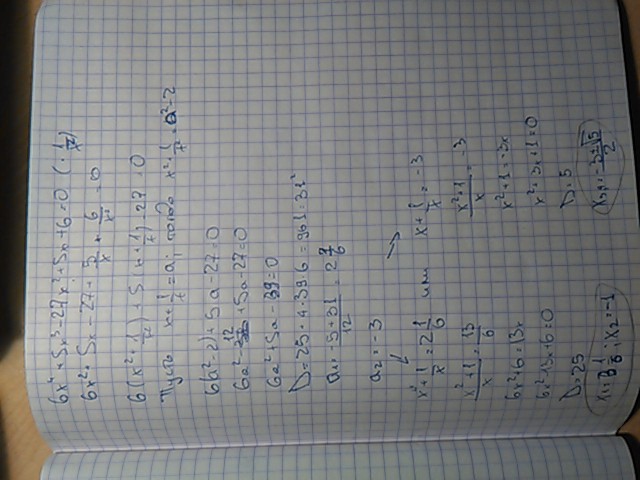 6x⁴+5x³-27x²+5x+6=0 (·1/x²)
6x²+5x-27+5/x+6/x²=0
6(x²+1/x²)+5(x+1/x)-27=0
Пусть x+1/x=a; тогда x²+1/x²=a²-2
6(a²-2)+5a-27=0
6a²-12+5a-27=0
6a²+5a-39=0
D=25+4·39·6=961=31²
a₁=(-5+31)/12=2 1/6
a₂=-3
x+1/x=2 1/6 или x+1/x=-3
(x²+1)/x=13/6 (x²+1)/x=-3
6x²+6=13x x²+1=-3x
6x²-13x+6=0 x²+3x+1=0
D=25 D=5
x₂=-1 (-3±√5)/2